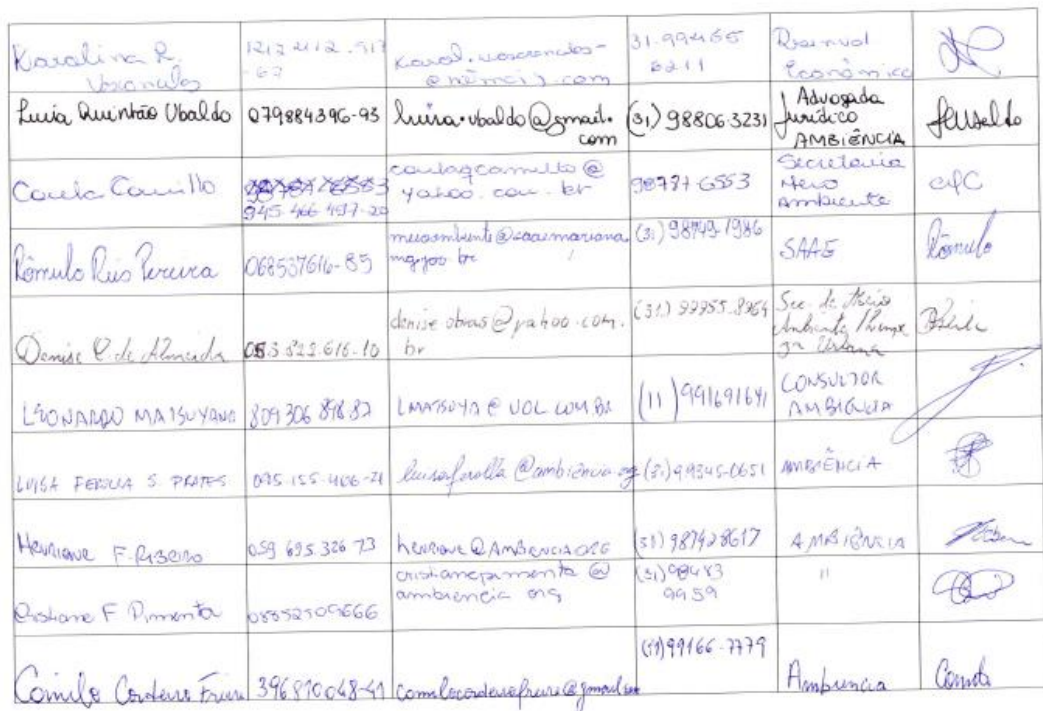 Karolina R. Vasconcelos
31.99465 6211
Econômico
Luiza Quintão Ubaldo 079884396-93 luiza.ubaldo@gmail.com (31) 98806-3231 Advogada Jurídico AMBIÊNCIA
Carla Camillo
945.466.497-20
carlagcamillo@yahoo.com.br
98787-6553
Secretaria Meio Ambiente
CGC
Rômulo Reis Pereira 068537616-85
meioambiente@saaemariana.mg.gov.br
(31) 98749-1986
SAAE
Rômulo
Denise C. de Almeida 053.822.616-10
denise.obras@yahoo.com.br
(31) 99955-8964
Sec. de Meio Ambiente
LEONARDO MATSUYAMA 809306 898 87 LMATSUYA@UOL.COM.BR (11) 991691641 CONSULTOR AMBIÊNCIA
LUISA S. PRATES 095-155-406-21
@ambiencia.org (31) 99345-0651 AMBIÊNCIA
HENRIQUE F. RIBEIRO 059 695.326 73 HENRIQUE@AMBIENCIA.ORG (31) 987428617 AMBIÊNCIA
Cristiane F Pimenta 08552509666
cristianepimenta@ambiencia.org
(31) 98483 9959
"
Camilo Cordeiro Freire 396870048-41 camilocordeirofreire@gmail.com
(31) 99166-7779
Ambiencia
Camilo